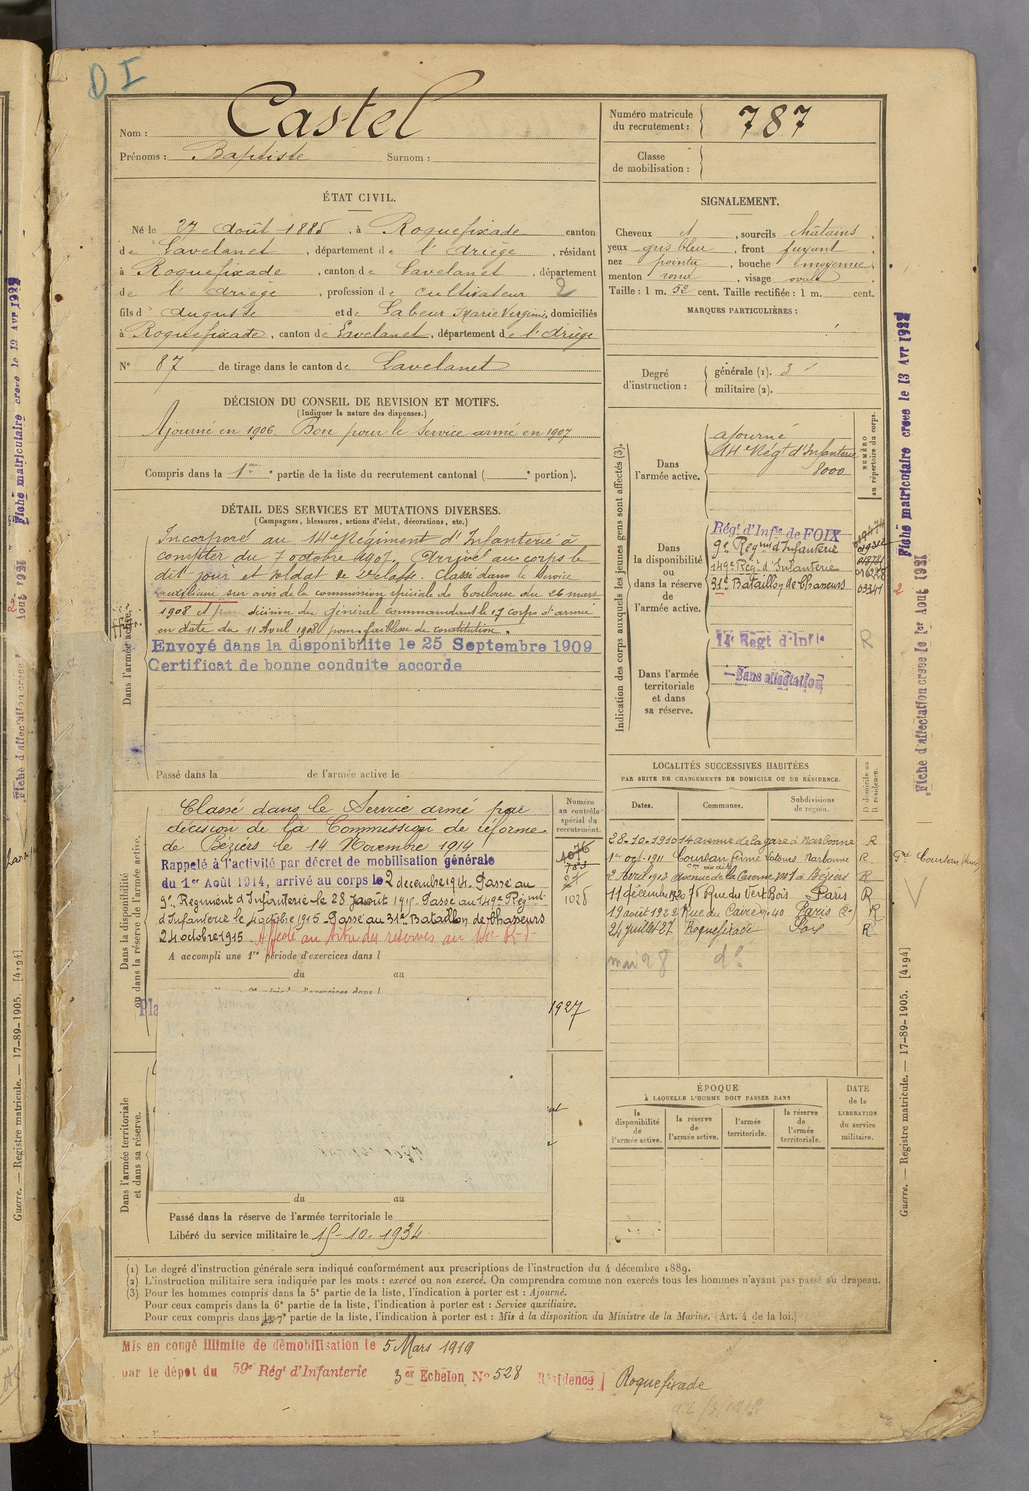 D I
Castel
Nom :
Prénoms : Baptiste Surnom :
Numéro matricule du recrutement : 787
Classe de mobilisation :
ÉTAT CIVIL.
Né le 27 Août 1885, à Roquefixade canton
de Lavelanet, département de l'Ariège, résidant
à Roquefixade, canton de Lavelanet, département
de l'Ariège, profession de cultivateur 2
fils d'Auguste et de Labeur Marie Virginie, domiciliés
à Roquefixade, canton de Lavelanet, département de l'Ariège
N° 87 de tirage dans le canton de Lavelanet
SIGNALEMENT.
Cheveux et, sourcils châtains,
yeux gris bleu, front fuyant,
nez pointu, bouche moyenne,
menton rond, visage ovale
Taille : 1 m. 52 cent. Taille rectifiée : 1 m. cent.
MARQUES PARTICULIÈRES :
Degré d'instruction : générale (1). 3
militaire (2).
DÉCISION DU CONSEIL DE REVISION ET MOTIFS.
(Indiquer la nature des dispenses.)
Ajourné en 1906. Bon pour le service armé en 1907
Compris dans la 1re partie de la liste du recrutement cantonal ( portion).
DÉTAIL DES SERVICES ET MUTATIONS DIVERSES.
(Campagnes, blessures, actions d'éclat, décorations, etc.)
Dans l'armée active.
Incorporé au 14e Régiment d'Infanterie à
compter du 7 octobre 1907. Arrivé au corps le
dit jour et soldat de 2e classe. Classé dans le service
auxiliaire sur avis de la commission spéciale de Toulouse du 26 mars
1908 et par décision du Général Commandant le 17 corps d'armée
en date du 11 Avril 1908 pour faiblesse de constitution.
Envoyé dans la disponibilité le 25 Septembre 1909
Certificat de bonne conduite accordé
Passé dans la de l'armée active le
Indication des corps auxquels les jeunes gens sont affectés (3).
NUMÉRO au répertoire du corps.
Dans l'armée active.
ajourné
14e Régt d'Infanterie
8000
Dans la disponibilité ou dans la réserve de l'armée active.
Régt d'Infie de FOIX
9e Regmt d'Infanterie
149e Régt d'Infanterie
31e Bataillon de Chasseurs 03341
Dans l'armée territoriale et dans sa réserve.
14 Regt d'Infie R
Sans affectation
LOCALITÉS SUCCESSIVES HABITÉES
PAR SUITE DE CHANGEMENTS DE DOMICILE OU DE RÉSIDENCE.
Dates. Communes. Subdivisions de région. D domicile ou R résidence.
28-10-1910 14 avenue de la gare à Narbonne R
1er oct. 1911 Coursan Narbonne R
2 Avril 1912 avenue de la à Béziers R
11 décembre 1920 76 Rue du Vert Bois Paris R
19 août 1922 Rue du Caire 40 Paris (2e) R
24 juillet 27 Roquefixade Foix R
mai 28 do
Dans la disponibilité ou dans la réserve de l'armée active.
Numéro au contrôle spécial du recrutement.
Classé dans le Service armé par
décision de la Commission de réforme
de Béziers le 14 Novembre 1914
Rappelé à l'activité par décret de mobilisation générale
du 1er Août 1914, arrivé au corps le 2 decembre 1914. Passé au
9e Regiment d'Infanterie le 28 1915. Passé au 149e Régmt
d'Infanterie le 4 octobre 1915. Passé au 31e Bataillon de Chasseurs
24 octobre 1915. Affecté au des réserves au
1028
A accompli une 1re période d'exercices dans l
du au
Pla
1927
Dans l'armée territoriale et dans sa réserve.
du au
Passé dans la réserve de l'armée territoriale le
Libéré du service militaire le 15-10-1934
ÉPOQUE
À LAQUELLE L'HOMME DOIT PASSER DANS
la disponibilité de l'armée active. la réserve de l'armée active. l'armée territoriale. la réserve de l'armée territoriale.
DATE de la LIBÉRATION du service militaire.
(1) Le degré d'instruction générale sera indiqué conformément aux prescriptions de l'instruction du 4 décembre 1889.
(2) L'instruction militaire sera indiquée par les mots : exercé ou non exercé. On comprendra comme non exercés tous les hommes n'ayant pas passé au drapeau.
(3) Pour les hommes compris dans la 5e partie de la liste, l'indication à porter est : Ajourné.
Pour ceux compris dans la 6e partie de la liste, l'indication à porter est : Service auxiliaire.
Pour ceux compris dans la 7e partie de la liste, l'indication à porter est : Mis à la disposition du Ministre de la Marine. (Art. 4 de la loi.)
Mis en congé illimité de démobilisation le 5 Mars 1919
par le dépot du 59e Régt d'Infanterie 3er Echelon No 528 Résidence Roquefixade
Fiche matriculaire creee le 13 Avr 1927
Fiche d'affectation creee le 1er Août 1931
Guerre. — Registre matricule. — 17-89-1905. [4194]
Fiche matriculaire creee le 12 Avr 1927
Guerre. — Registre matricule. — 17-89-1905. [4194]